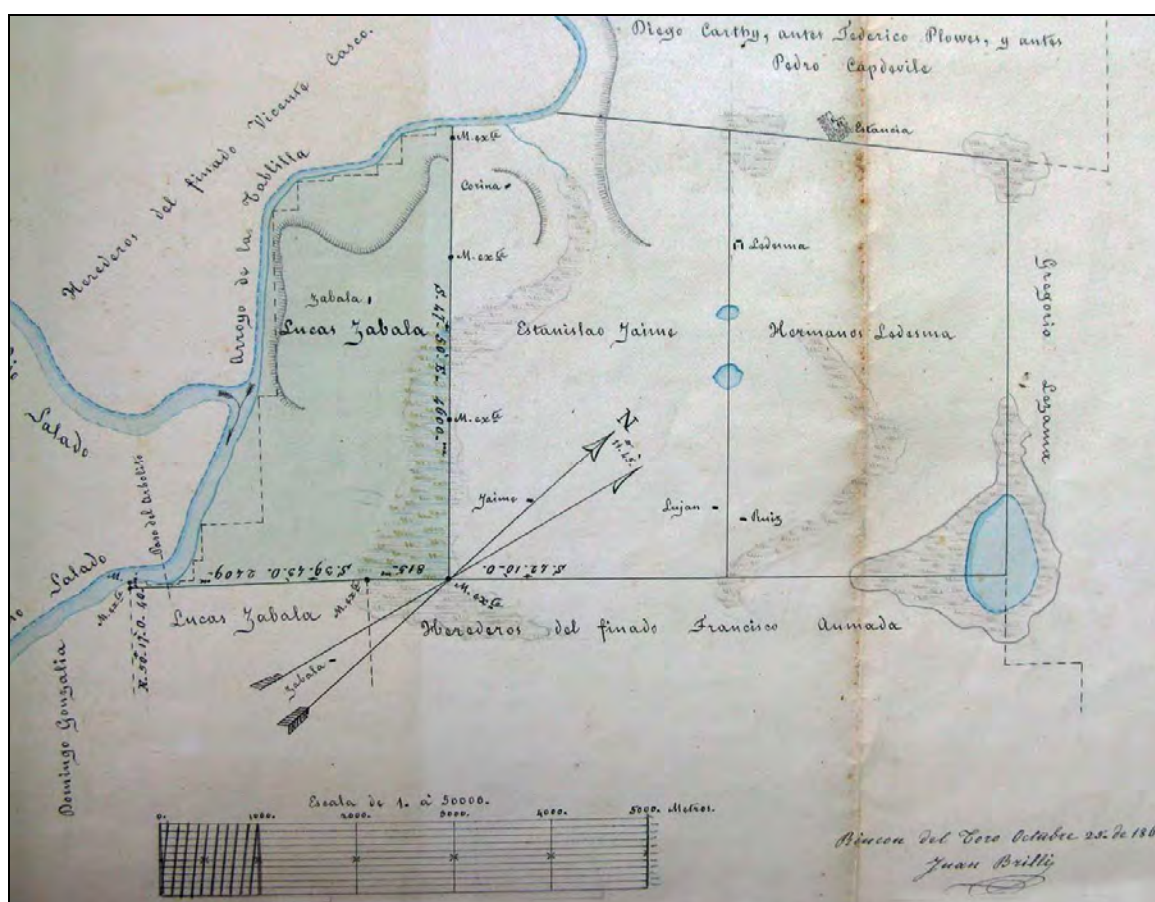 Diego Carthy, antes Federico Plowes, y antes
Pedro Capdevile
Herederos del finado Vicente Casco.
Arroyo de las Tablilla
Estancia
M. ex.te
Corina
M. ex.te
Ledesma
Zabala
Lucas Zabala
Estanislao Jaime
Hermanos Ledesma
Gregorio Lezama
S. 47° 50' E. 4600. m
M. ex.te
N
Salado
Paso del Arbolito
Jaime
Lujan
Ruiz
Salado
M. ex.te
S. 39° 45' O. 2409. m
M. ex.te
815. m
M. ex.te
S. 42° 10' O.
Lucas Zabala
Herederos del finado Francisco Aumada
Zabala
Domingo Gonzalia
Escala de 1. á 50000.
0. 1000. 2000. 3000. 4000. 5000. Metros.
Rincon del Toro Octubre 25. de
Juan Brilly